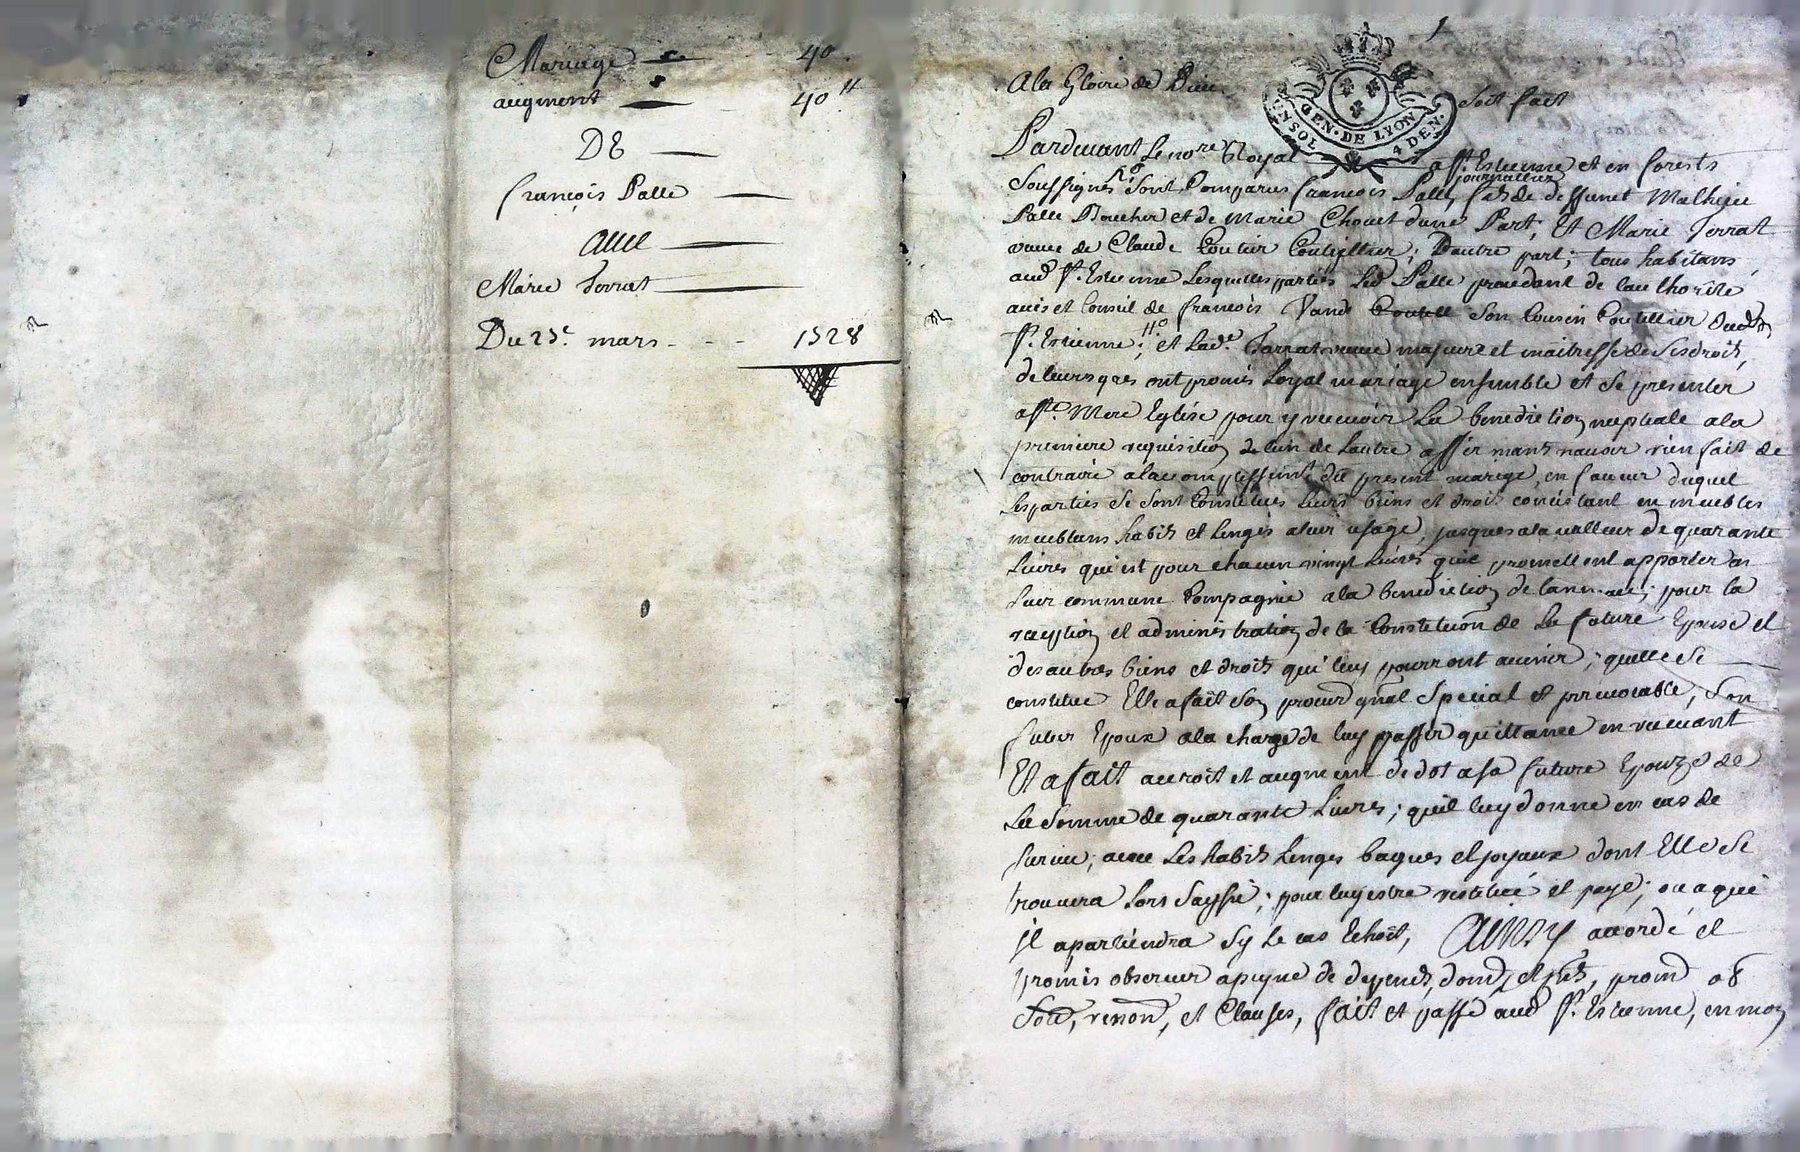 Mariage — 40.
augment — 40"
DE —
françois Palle —
avec —
Marie Terrat —
Du 23e. mars - - - 1728
1
A la Gloire de Dieu Soit fait
GEN. DE LYON
UN SOL 4 DEN.
Pardevant Le nore Royal a St. Estienne et en forests
journallier
Soussignés Sont Comparus francois Palle, fils de deffunct Mathieu
Palle Boucher et de Marie Chovet dune Part, Et Marie Terrat
veuve de Claude Coutier Coutellier; Dautre part; tous habitans
aud St. Estienne Lesquelles parties Led Palle procedant de lauthorité
avis et Conseil de francois Son Cousin Coutellier dud
St. Estienne; et Lade. Terrat veuve majeure et maitresse de Ses droits,
de leurs gres ont promis Loyal mariage ensemble et de se presenter
a Ste Mere Eglise pour y recevoir La benediction nuptiale a la
premiere requisition de lun de Lautre affirmants navoir rien fait de
contraire a lacomplissement du present mariage, en faveur duquel
Les parties Se Sont Constitués Leurs biens et droits consistant en meubles
meublans habits et Linges a leur usage, jusques a la valleur de quarante
Livres qui est pour chacun vingt Livres quil promettent apporter en
Leur commune Compagnie a la benediction de pour la
reception et administration de la Constitution de La future Epouse et
des autres biens et droits qui luy pourront avenir; quelle Se
constitue Elle a fait Son procur gnal Special et irrevocable, Son
futur Epoux a la charge de luy passer quittance en recevant
Et a fait accroit et augment de dot a Sa future Epouze de
La Somme de quarante Livres; quil luy donne en cas de
Survie; avec Les habits Linges bagues et joyaux dont Elle Se
trouvera Lors Saysie; pour luy estre restitué et payé; ou a qui
il apartiendra Sy Le cas Echoit, AINSY accordé et
promis observer a peyne de depends, dom, et jnts, promd ob
Soud, renond, et Clauses, fait et passé aud St. Estienne, en mon